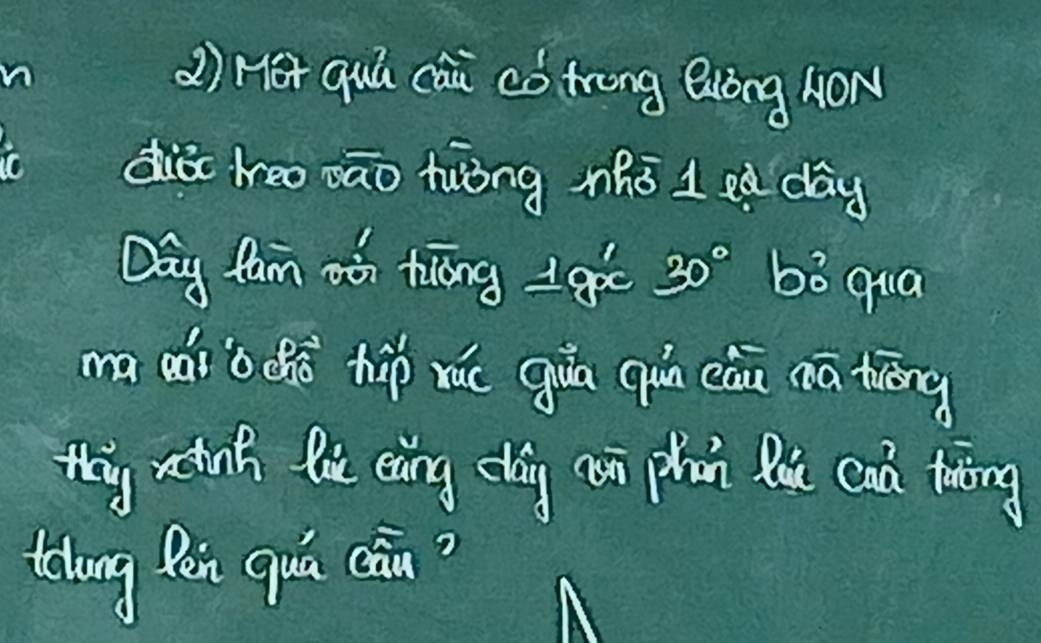 2) Một quả cầu có trọng lượng 40N
n
được treo vào tường nhờ 1 sợi dây
Dây làm với tường 1 góc 30° bỏ qua
ma sát ở chỗ tiếp xúc giữa quả cầu và tường
Hãy xđịnh lực căng dây và phản lực của tường
tdụng lên quả cầu?